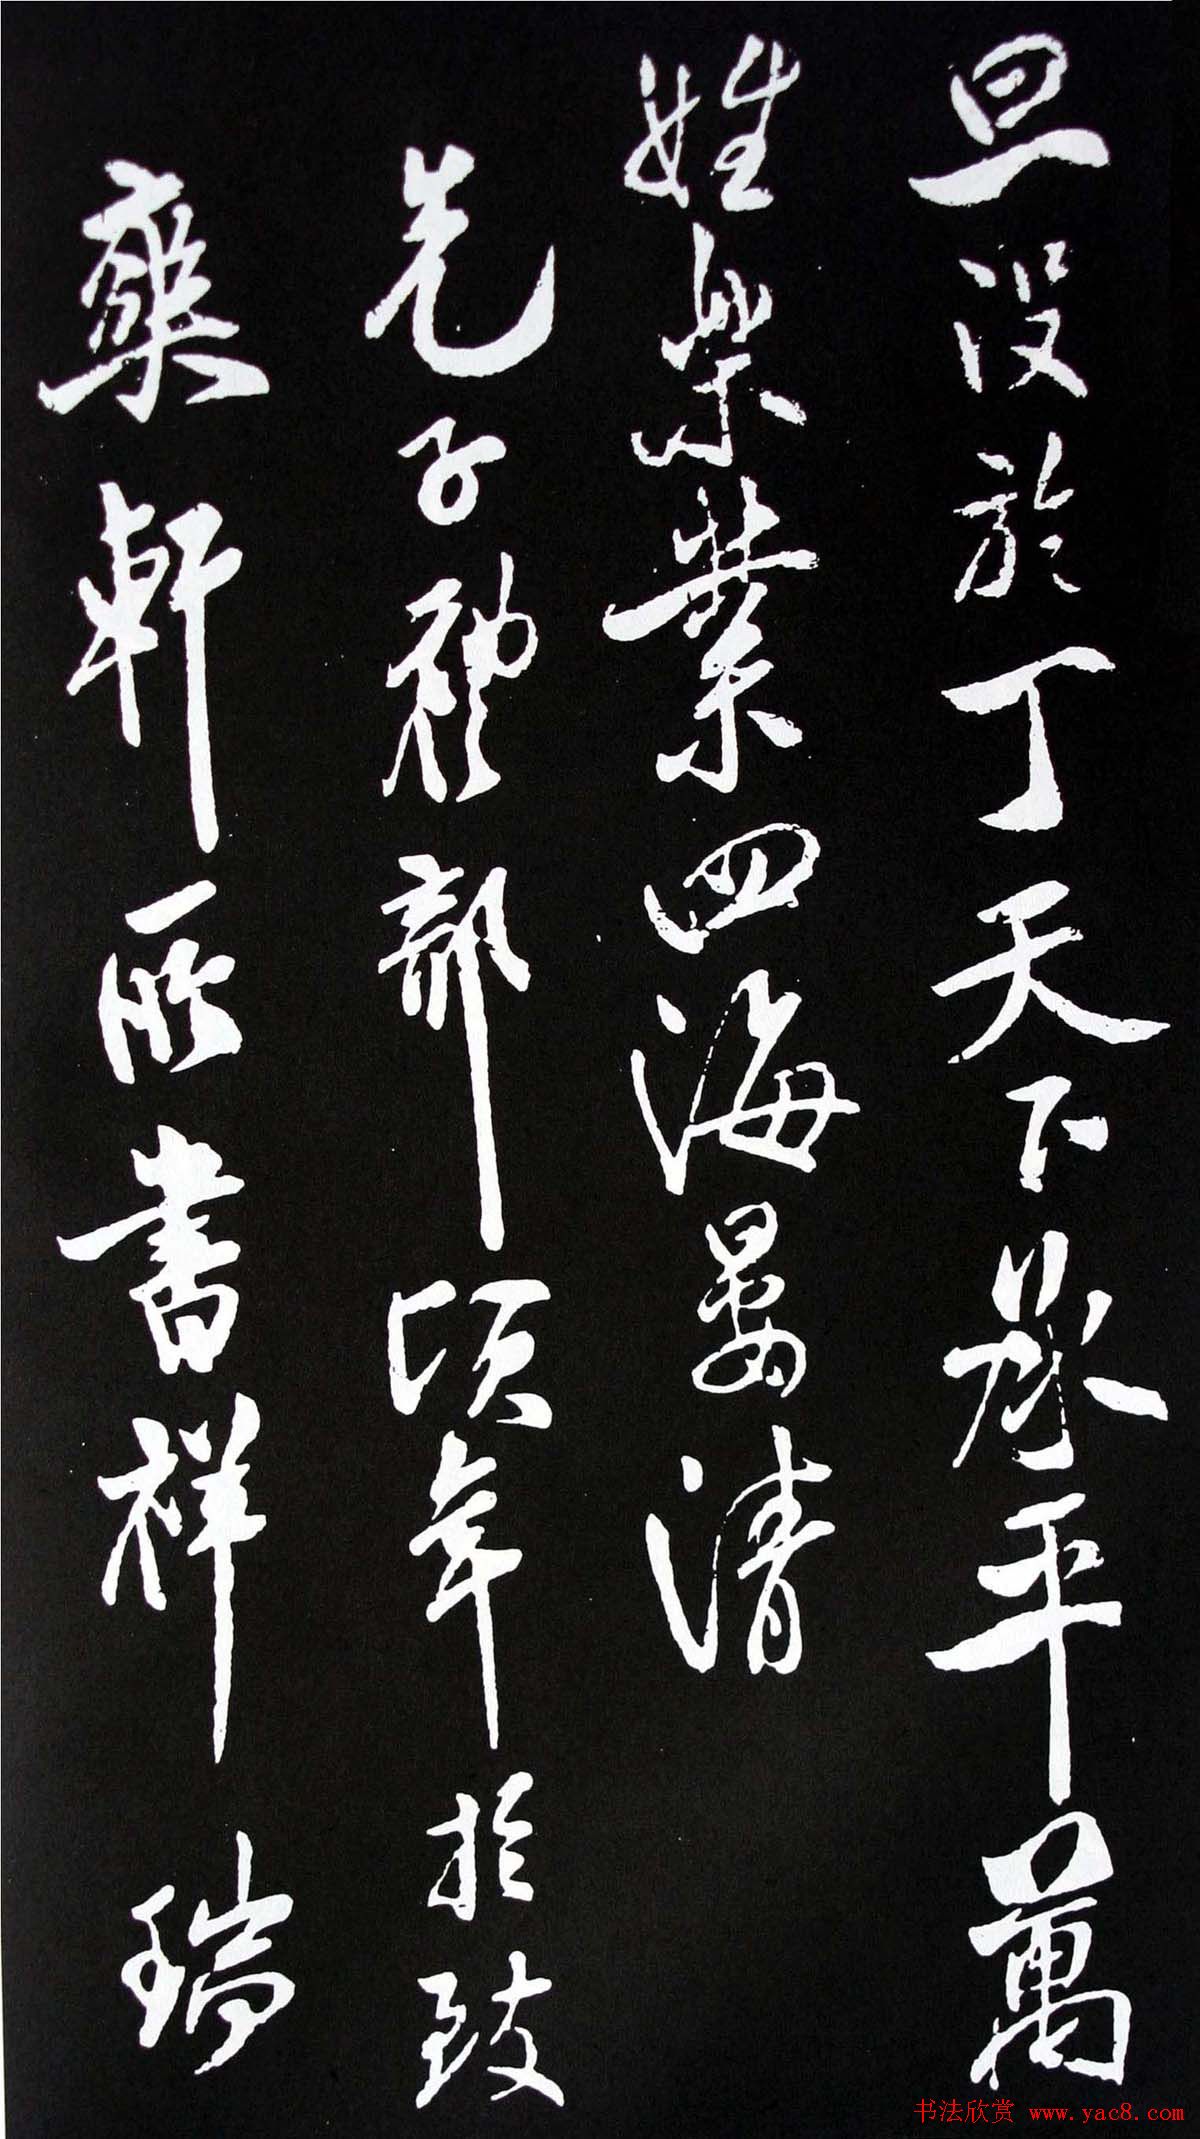 旦設於丁天下承平萬
姓樂業四海晏清
先子禮部頃年於致
爽軒所書祥瑞
书法欣赏 www.yac8.com